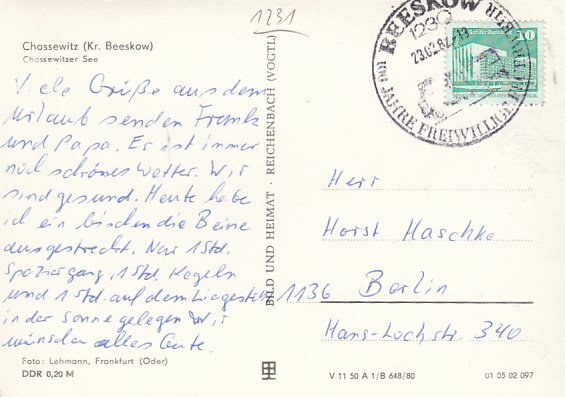 1231
Chossewitz (Kr. Beeskow)
Chossewitzer See
Viele Grüße aus dem
Urlaub senden Frank
und Papa. Es ist immer
noch schönes Wetter. Wir
sind gesund. Heute habe
ich ein bischen die Beine
ausgestreckt. Nur 1 Std.
Spaziergang, 1 Std. Kegeln
und 1 Std. auf dem Liegestuhl
in der Sonne gelegen Wir
wünschen alles Gute.
Foto: Lehmann, Frankfurt (Oder)
DDR 0,20 M
BILD UND HEIMAT · REICHENBACH (VOGTL)
BEESKOW
1230
23.02.82-13
100 JAHRE FREIWILLIGE
10
Herr
Horst Haschke
1136 Berlin
Hans-Loch str. 340
V 11 50 A 1/B 648/80
01 05 02 097